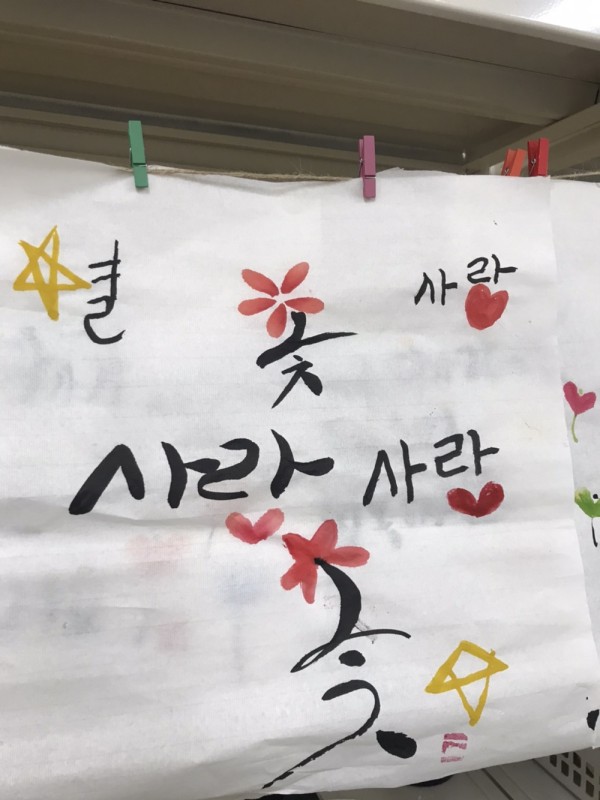 별 꽃 사랑
사랑 사랑
꽃